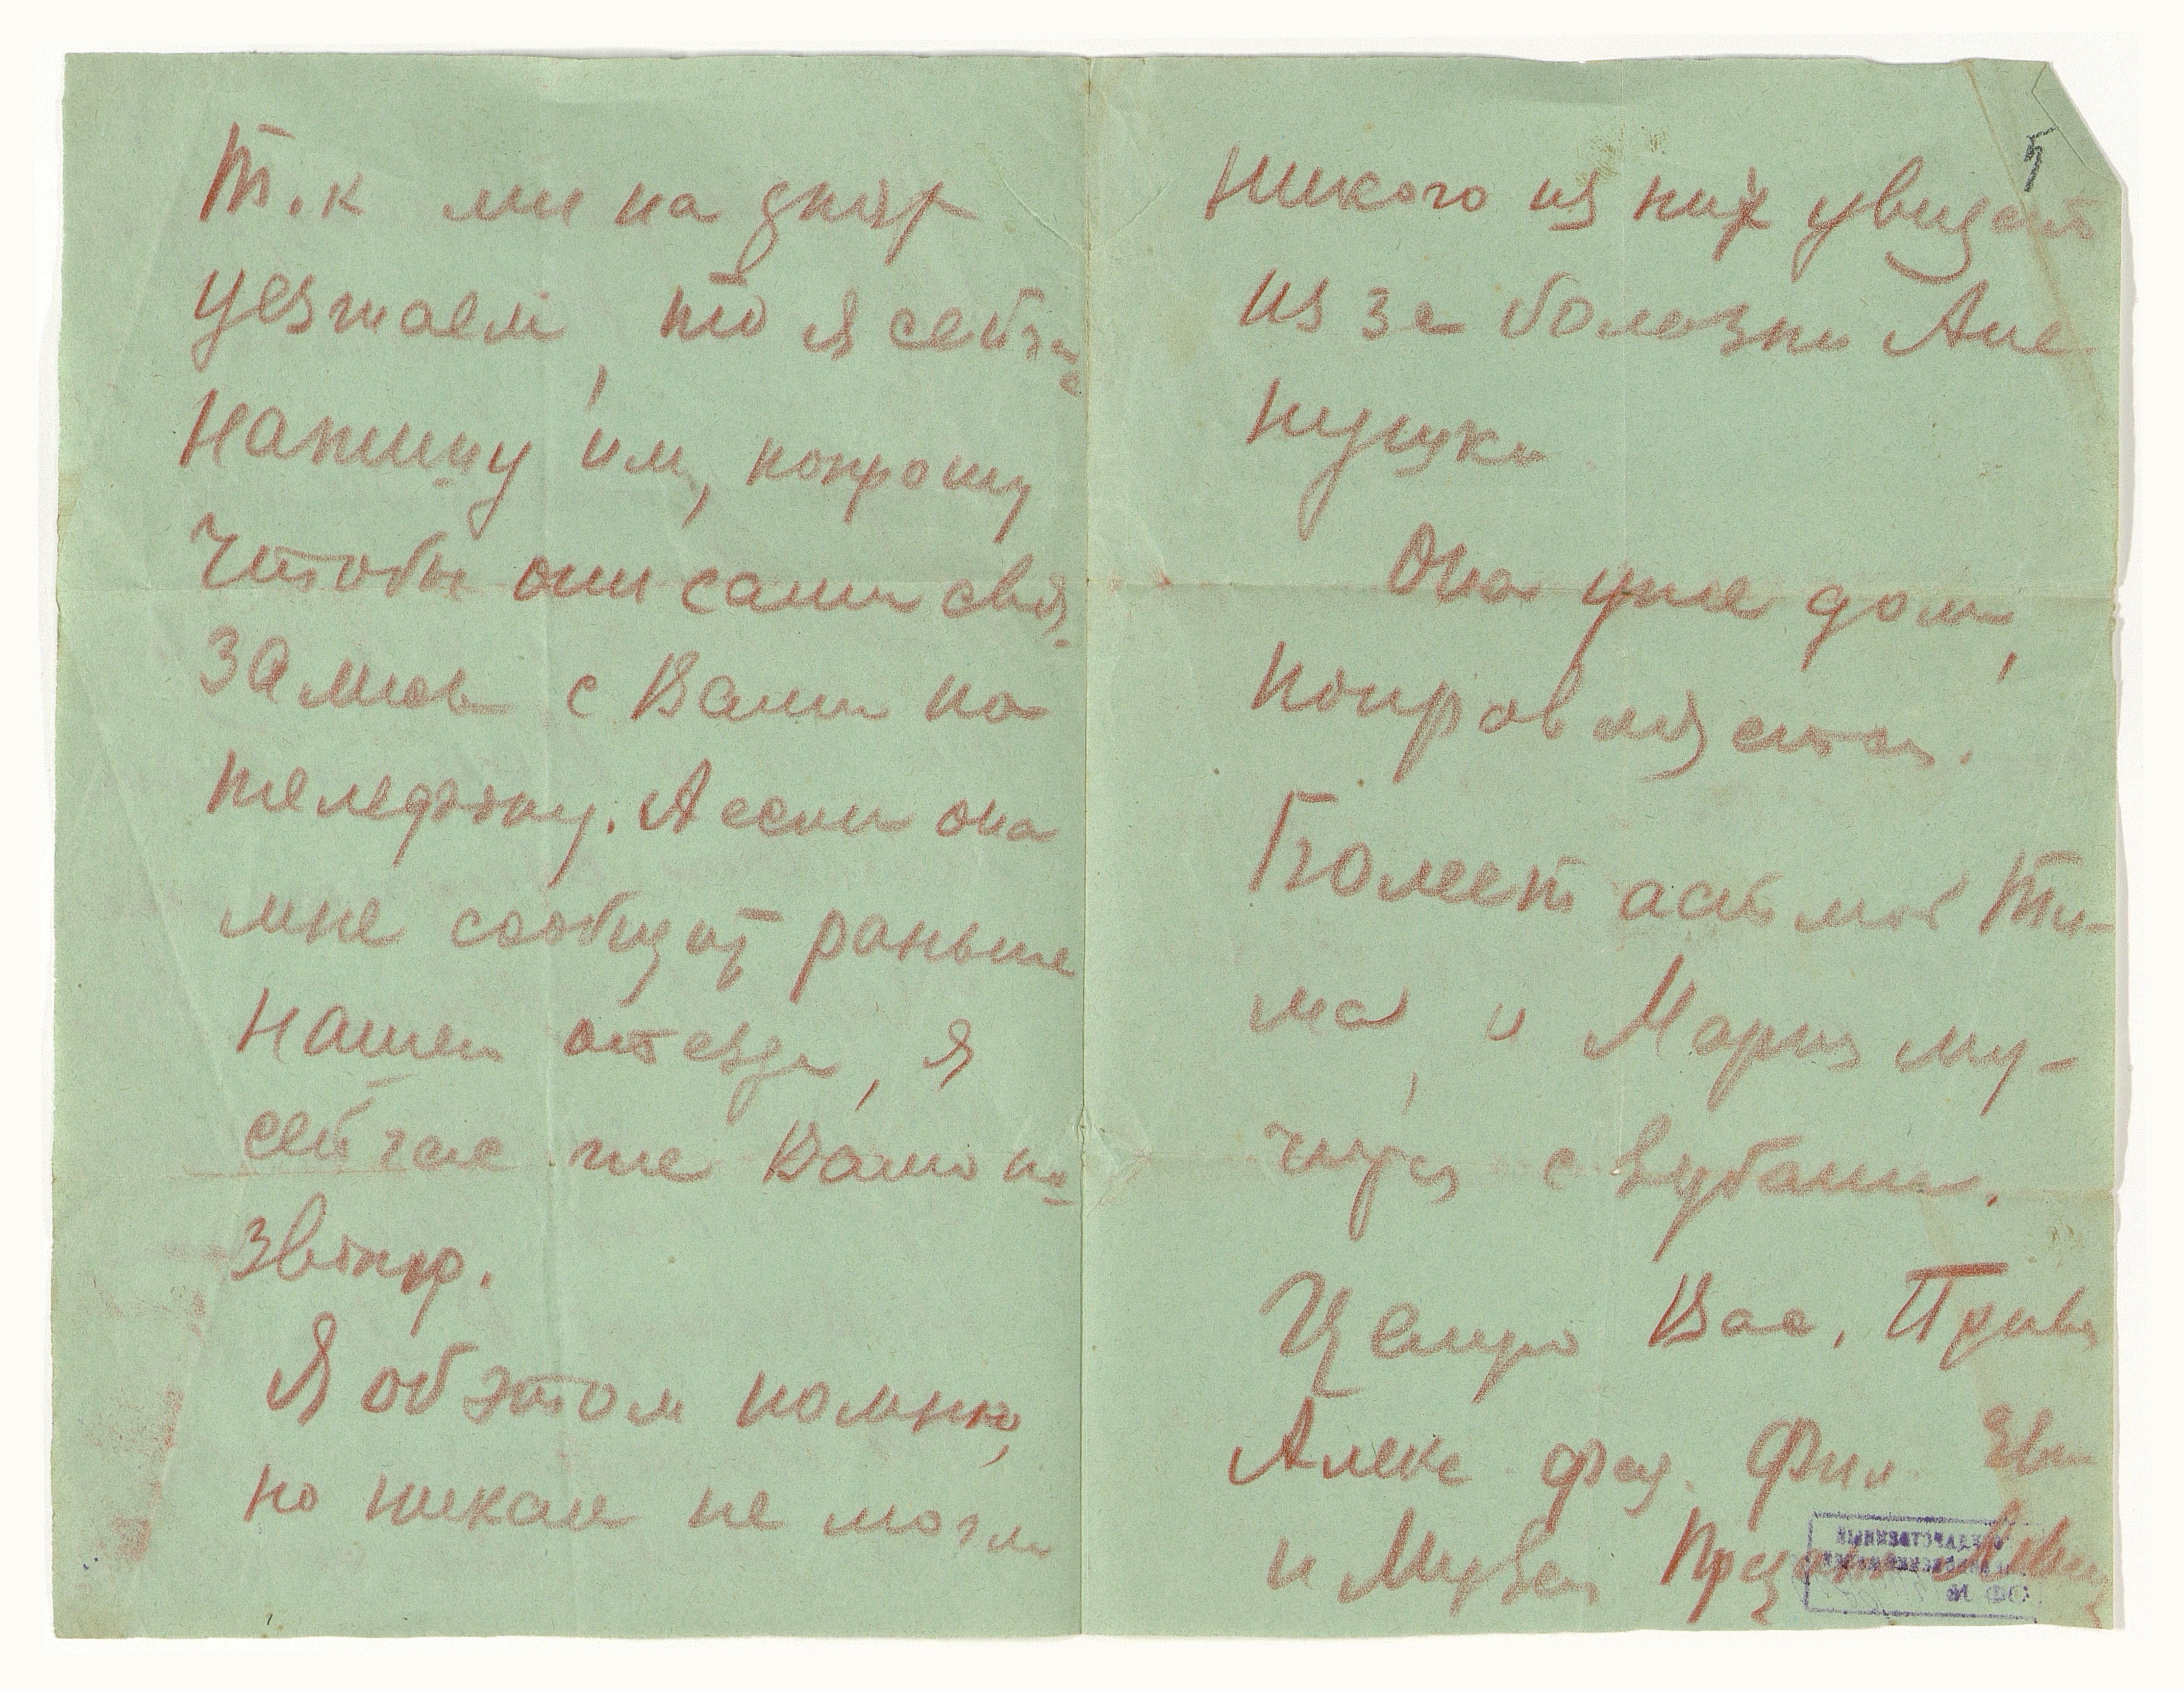 Т.к мы на днях
уезжаем, то я сейчас
напишу им, попрошу
чтобы они сами свя-
зались с Вами по
телефону. А если она
мне сообщит раньше
нашего отъезда, я
сейчас же Вам по-
звоню.
Я об этом помню,
но никак не могла
5
никого из них увидеть
из за болезни Але
нушки
Она уже дома,
поправляется.
Болеет астмой Ти-
ма, и Мария му-
чится с зубами.
Целую Вас. Привет
Алекс Фил.
и Музей